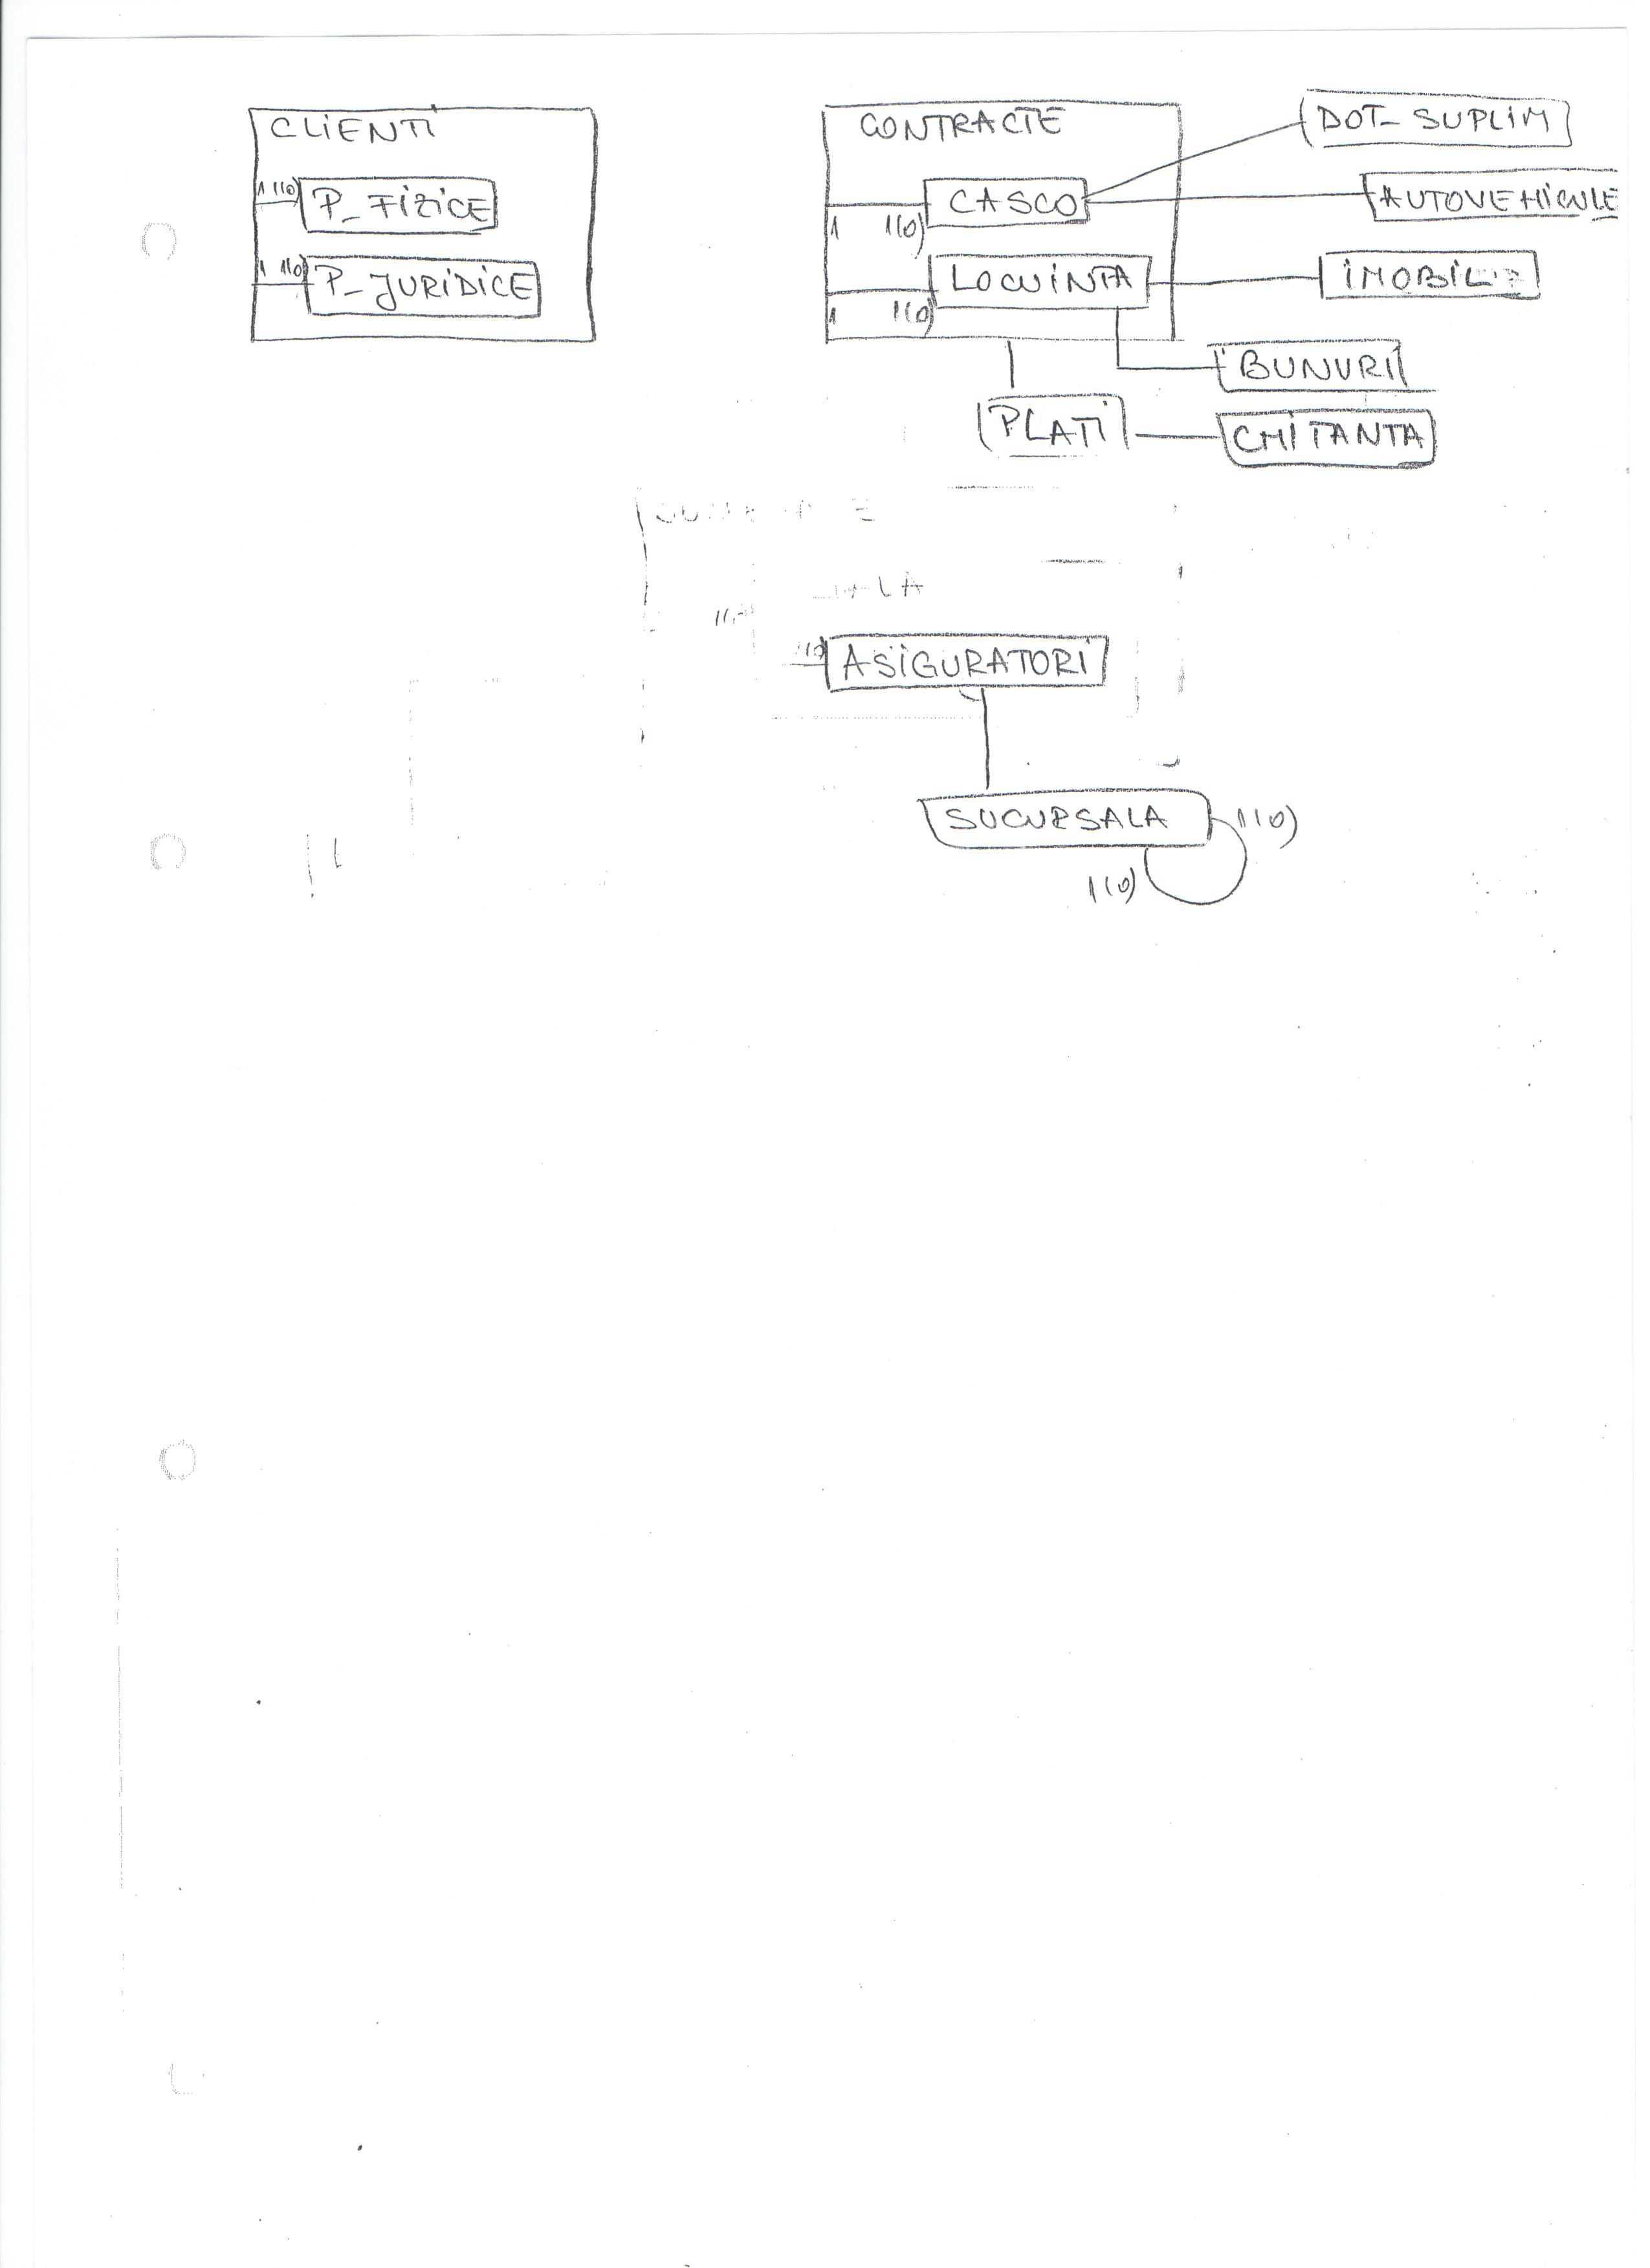 CLIENTI
1 1(0) P_FIZICE
1 1(0) P_JURIDICE
CONTRACTE
CASCO
1 1(0)
LOCUINTA
1 1(0)
DOT_SUPLIM
AUTOVEHICULE
IMOBIL
BUNURI
PLATI
CHITANTA
1(0) ASIGURATORI
SUCURSALA 1(0)
1(0)